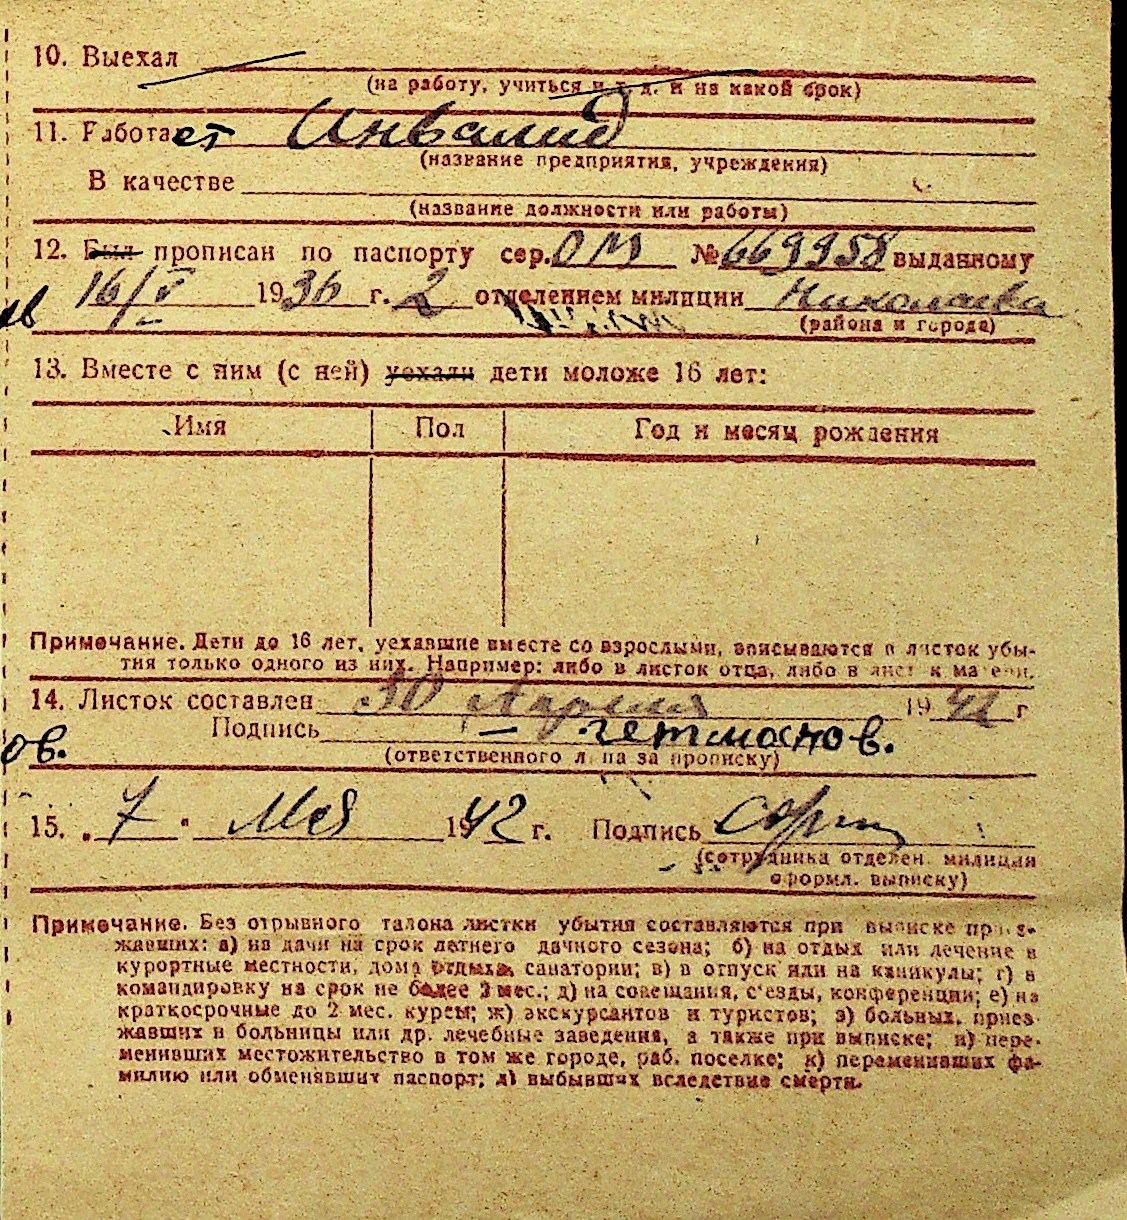 10. Выехал
(на работу, учиться и т. д. и на какой срок)
11. Работает Инвалид
(название предприятия, учреждения)
В качестве
(название должности или работы)
12. Был прописан по паспорту сер. ОМ № 669958 выданному
16/V 1936 г. 2 отделением милиции Николаева
(района и города)
13. Вместе с ним (с ней) уехали дети моложе 16 лет:
Имя Пол Год и месяц рождения
Примечание. Дети до 16 лет, уехавшие вместе со взрослыми, вписываются в листок убы-
тия только одного из них. Например: либо в листок отца, либо в лист к матери.
14. Листок составлен 30 Апреля 1942 г
Подпись Гетманов.
ов.
(ответственного лица за прописку)
15. „7" Мая 1942 г. Подпись
(сотрудника отделен. милиции
оформл. выписку)
Примечание. Без отрывного талона листки убытия составляются при выписке приез-
жавших: а) на дачи на срок летнего дачного сезона; б) на отдых или лечение в
курортные местности, дома отдыха, санатории; в) в отпуск или на каникулы; г) в
командировку на срок не более 2 мес.; д) на совещания, с'езды, конференции; е) на
краткосрочные до 2 мес. курсы; ж) экскурсантов и туристов; з) больных, приез-
жавших в больницы или др. лечебные заведения, а также при выписке; и) пере-
менивших местожительство в том же городе, раб. поселке; к) переменивших фа-
милию или обменявших паспорт; л) выбывших вследствие смерти.